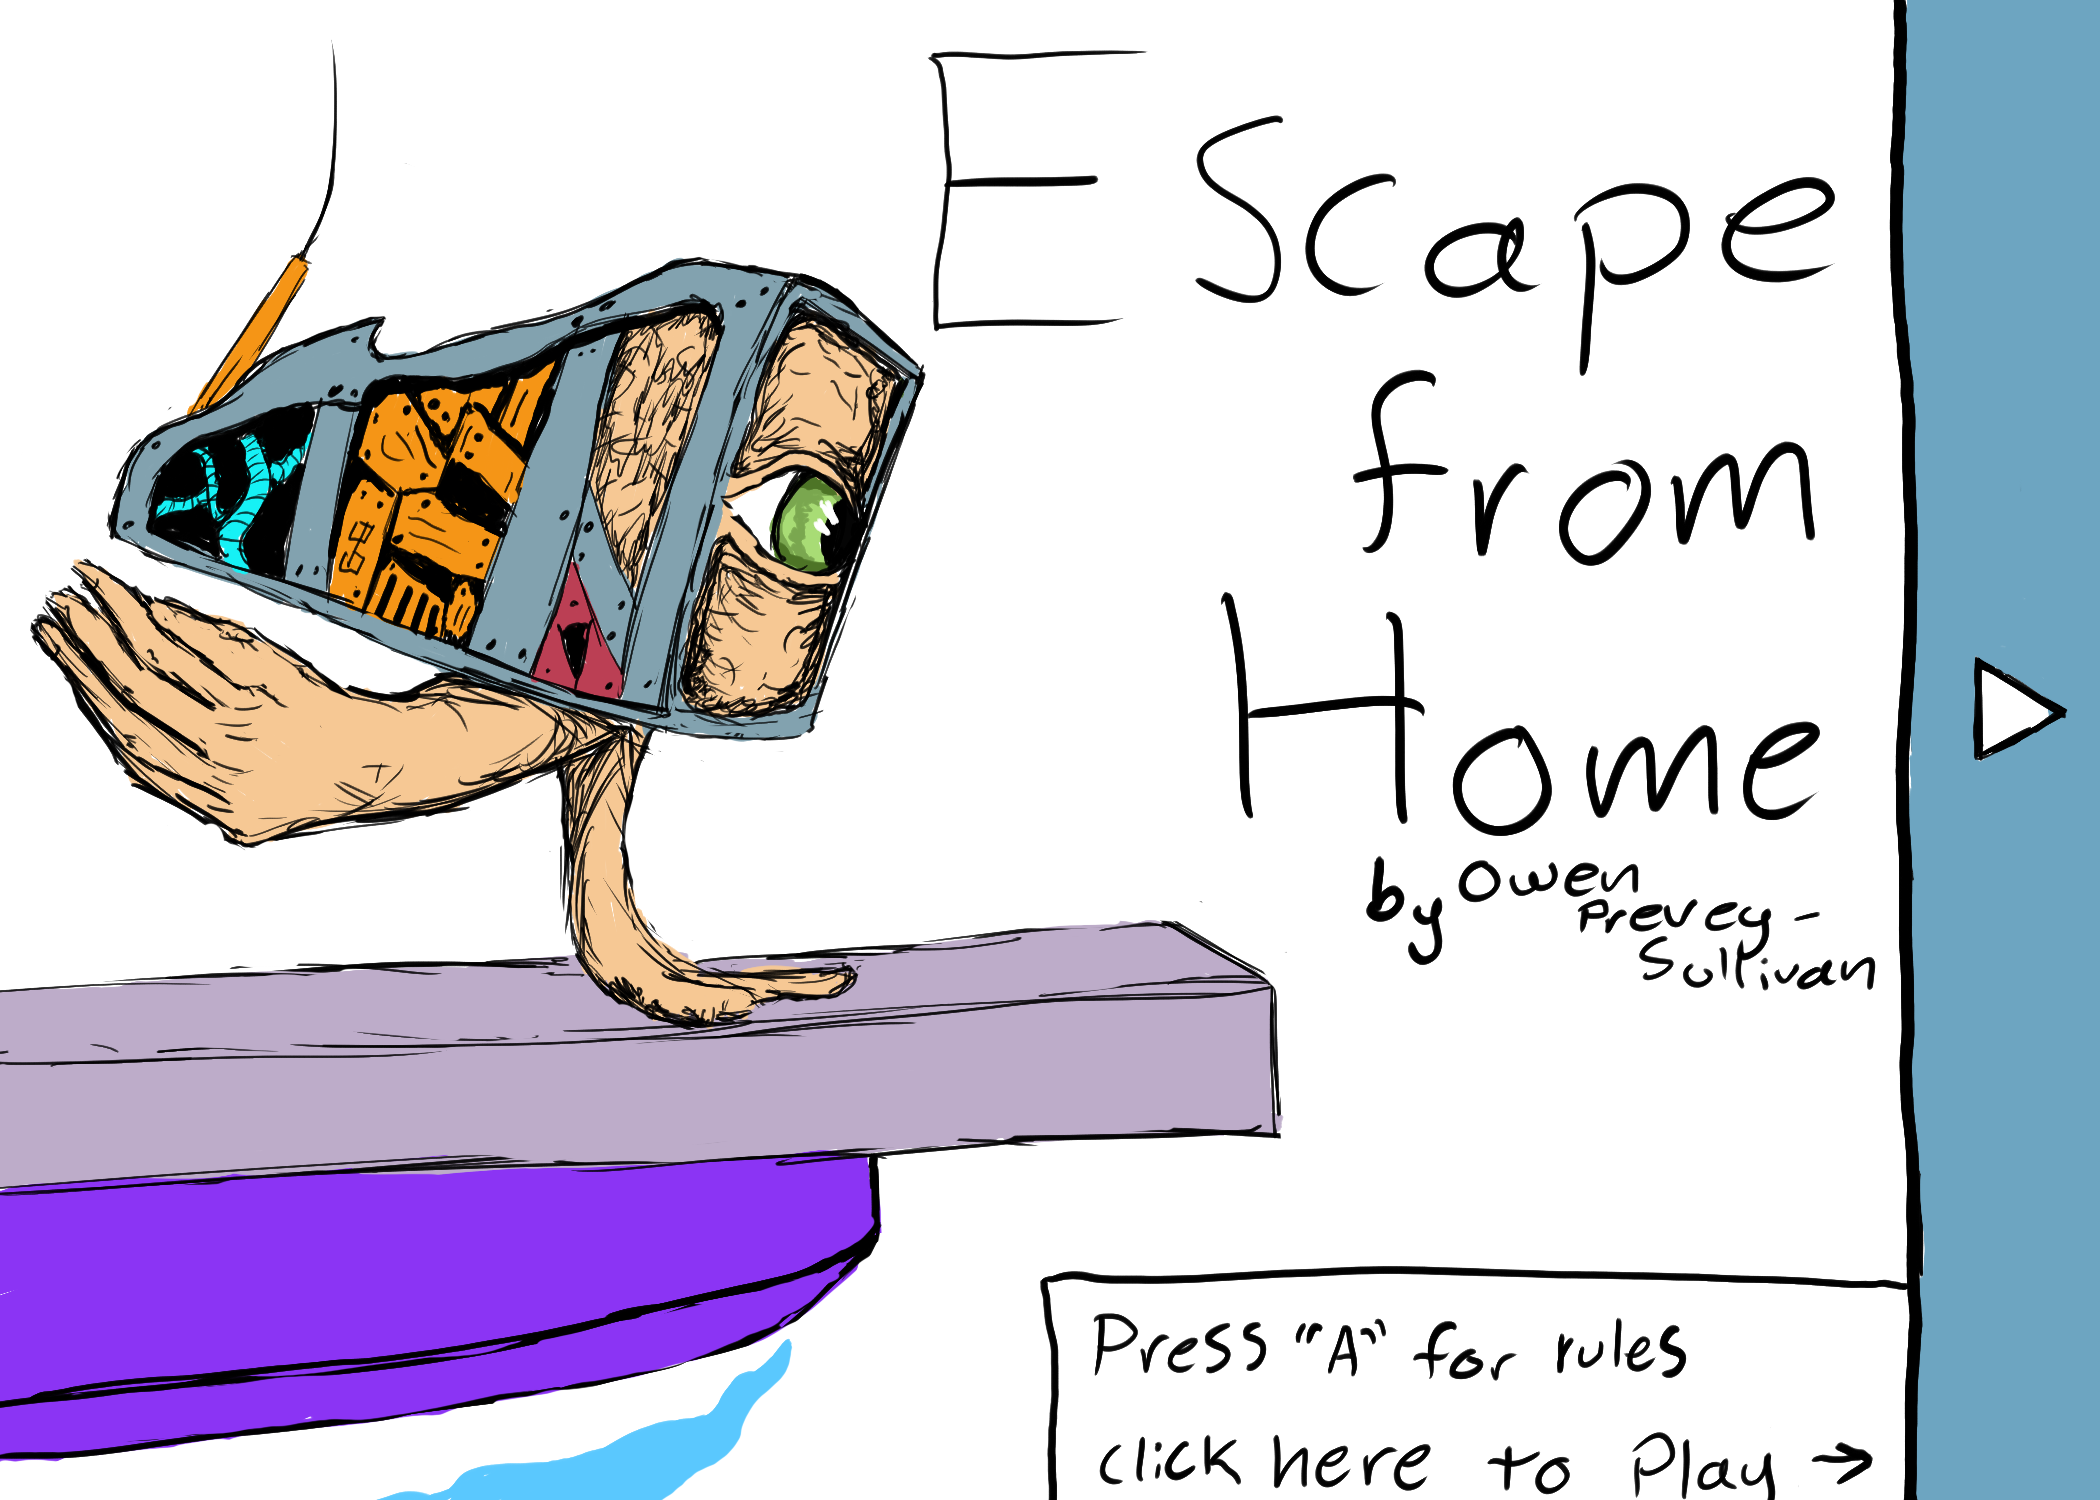 Escape
from
Home
by Owen
Prevey-
Sullivan
Press "A" for rules
click here to Play →